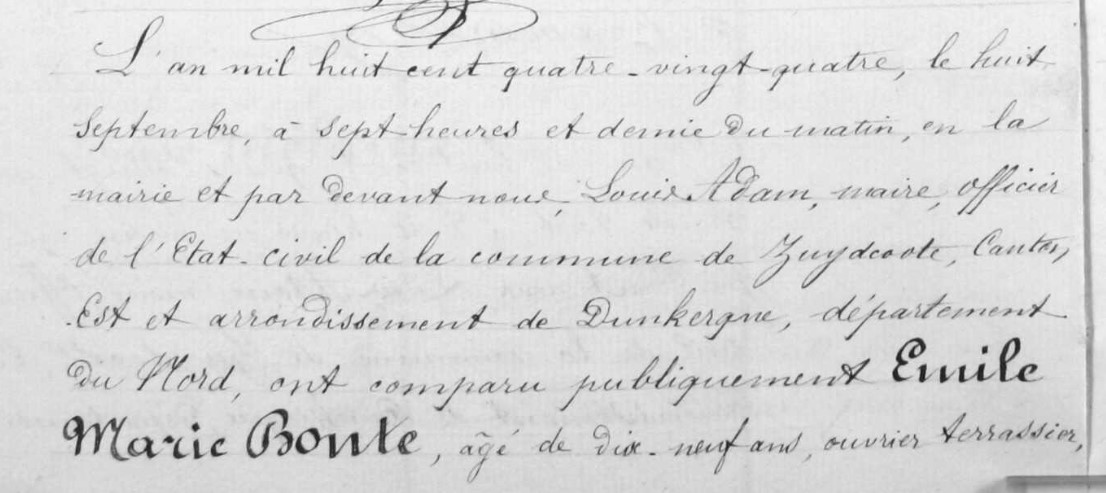 L'an mil huit cent quatre-vingt-quatre, le huit
Septembre, à sept heures et demie du matin, en la
mairie et par devant nous, Louis Adam, maire, officier
de l'Etat-civil de la commune de Zuydcoote, Canton
Est et arrondissement de Dunkerque, département
du Nord, ont comparu publiquement Emile
Marie Bonte, âgé de dix-neuf ans, ouvrier terrassier,